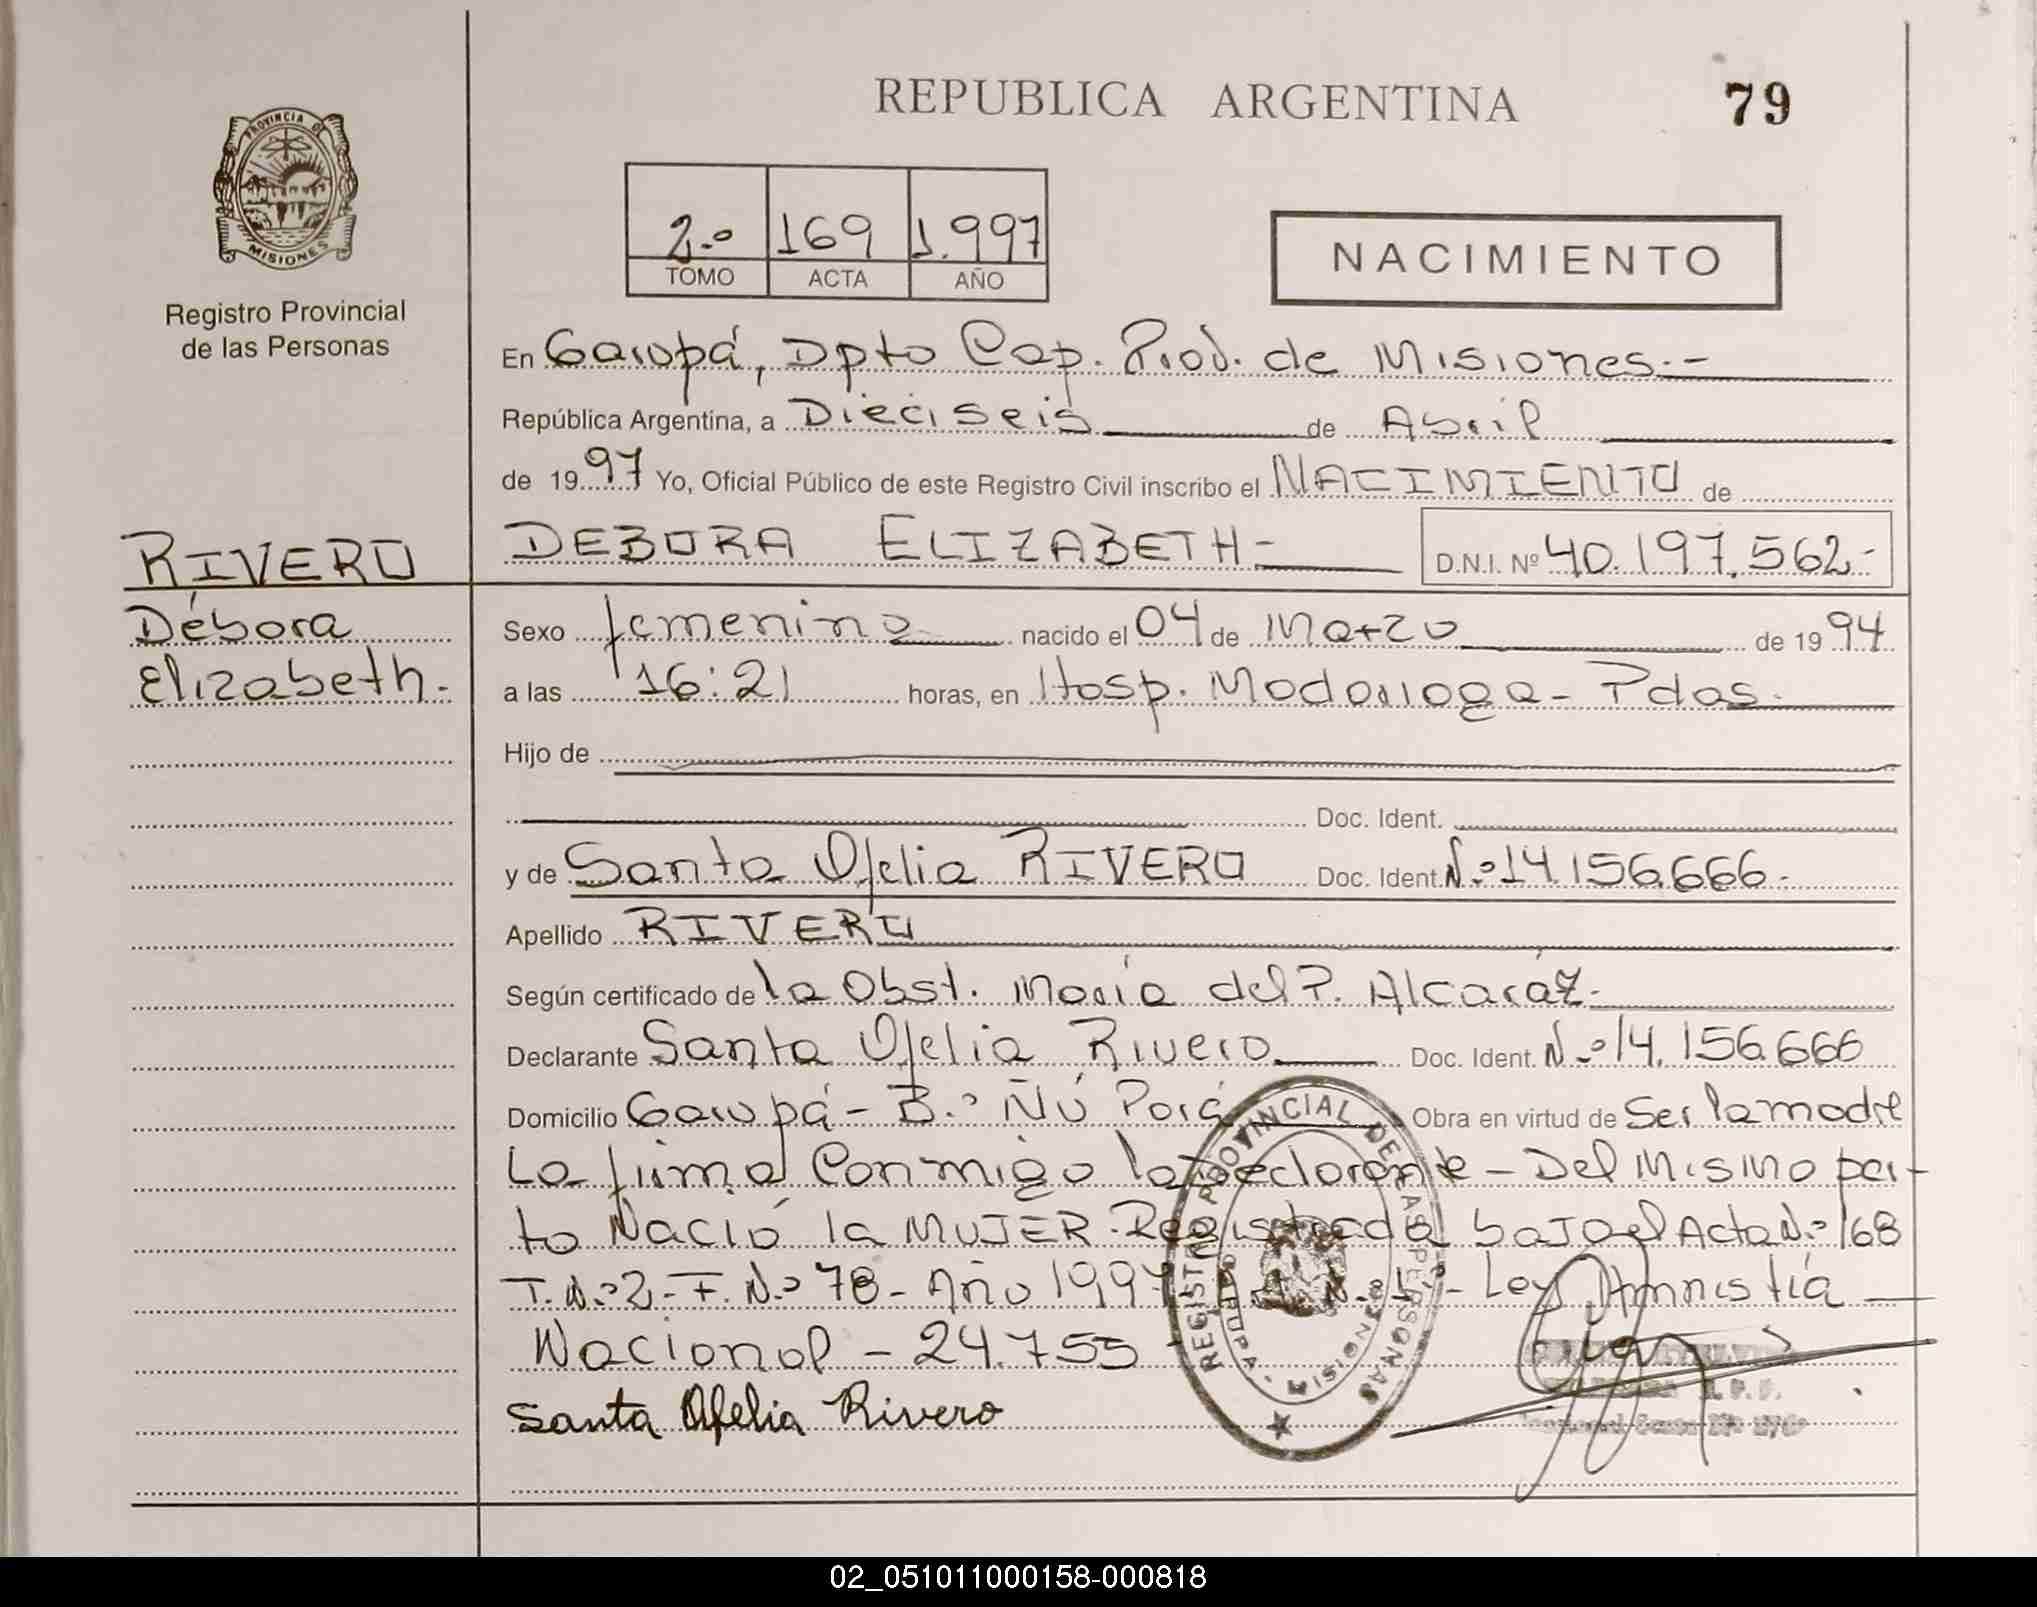 REPUBLICA ARGENTINA
79
PROVINCIA DE
MISIONES
Registro Provincial
de las Personas
2.º 169 1.997
TOMO ACTA AÑO
NACIMIENTO
En Garupá, Dpto Cap. Prov. de Misiones.-
República Argentina, a Dieciseis de Abril
de 1997 Yo, Oficial Público de este Registro Civil inscribo el NACIMIENTO de
RIVERO
DEBORA ELIZABETH- D.N.I. Nº 40.197.562-
Débora
Elizabeth.-
Sexo femenino nacido el 04 de Marzo de 1994
a las 16:21 horas, en Hosp. Madariaga - Pdas.
Hijo de
Doc. Ident.
y de Santa Ofelia RIVERO Doc. Ident. N.º 14.156.666.-
Apellido RIVERO
Según certificado de la Obst. María del P. Alcaráz.-
Declarante Santa Ofelia Rivero Doc. Ident. N.º 14.156.666
Domicilio Garupá - B.º Ñú Porá Obra en virtud de Ser la madre
La firma Conmigo la Declarante - Del Mismo par-
to Nació la MUJER. Registrada bajo el Acta N.º 168
T. N.º 2 - F. N.º 78 - Año 1997 - Ley Amnistía
Nacional - 24.755
Santa Ofelia Rivero
REGISTRO PROVINCIAL DE LAS PERSONAS
GARUPA - MISIONES
02_051011000158-000818